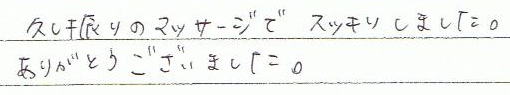 久し振りのマッサージで スッキリしました。
ありがとうございました。